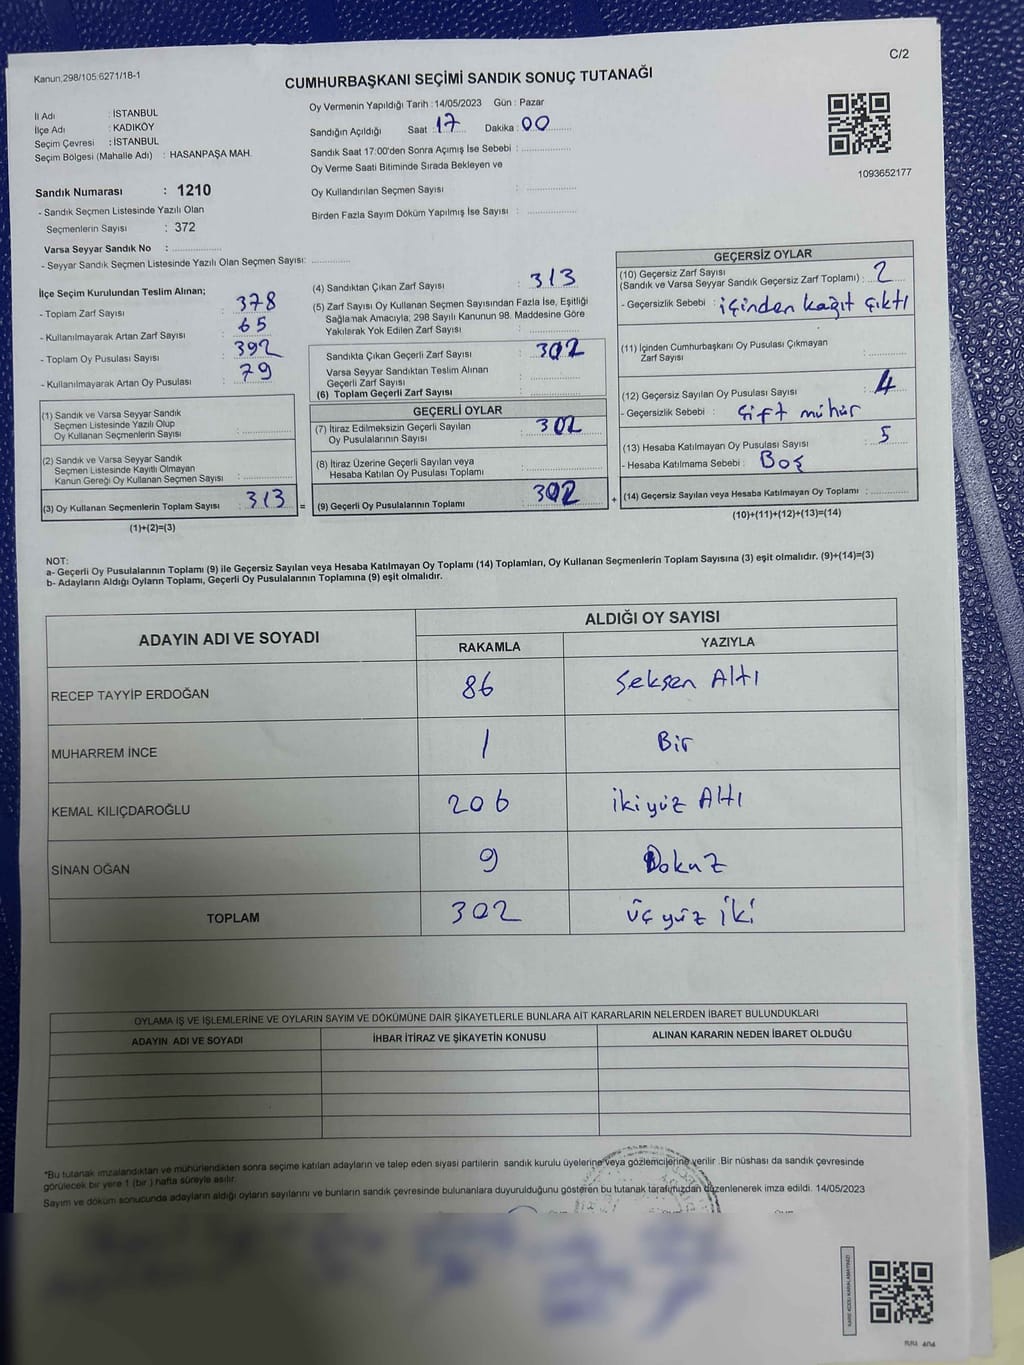 C/2
Kanun;298/105;6271/18-1
CUMHURBAŞKANI SEÇİMİ SANDIK SONUÇ TUTANAĞI
İl Adı : İSTANBUL
İlçe Adı : KADIKÖY
Seçim Çevresi : İSTANBUL
Seçim Bölgesi (Mahalle Adı) : HASANPAŞA MAH.
Sandık Numarası : 1210
- Sandık Seçmen Listesinde Yazılı Olan
Seçmenlerin Sayısı : 372
Varsa Seyyar Sandık No : ....................
- Seyyar Sandık Seçmen Listesinde Yazılı Olan Seçmen Sayısı: ...............
Oy Vermenin Yapıldığı Tarih : 14/05/2023 Gün : Pazar
Sandığın Açıldığı Saat : 17 Dakika : 00
Sandık Saat 17:00'den Sonra Açımış İse Sebebi : ...................
Oy Verme Saati Bitiminde Sırada Bekleyen ve
Oy Kullandırılan Seçmen Sayısı : ...................
Birden Fazla Sayım Döküm Yapılmış İse Sayısı : ...................
1093652177
İlçe Seçim Kurulundan Teslim Alınan;
- Toplam Zarf Sayısı : 378
- Kullanılmayarak Artan Zarf Sayısı : 65
- Toplam Oy Pusulası Sayısı : 392
- Kullanılmayarak Artan Oy Pusulası : 79
(1) Sandık ve Varsa Seyyar Sandık
Seçmen Listesinde Yazılı Olup
Oy Kullanan Seçmenlerin Sayısı : ...................
(2) Sandık ve Varsa Seyyar Sandık
Seçmen Listesinde Kayıtlı Olmayan
Kanun Gereği Oy Kullanan Seçmen Sayısı : ...................
(3) Oy Kullanan Seçmenlerin Toplam Sayısı : 313 =
(1)+(2)=(3)
(4) Sandıktan Çıkan Zarf Sayısı : 313
(5) Zarf Sayısı Oy Kullanan Seçmen Sayısından Fazla İse, Eşitliği
Sağlamak Amacıyla; 298 Sayılı Kanunun 98. Maddesine Göre
Yakılarak Yok Edilen Zarf Sayısı : ...................
Sandıkta Çıkan Geçerli Zarf Sayısı : 302
Varsa Seyyar Sandıktan Teslim Alınan
Geçerli Zarf Sayısı : ...................
(6) Toplam Geçerli Zarf Sayısı : ...................
GEÇERLİ OYLAR
(7) İtiraz Edilmeksizin Geçerli Sayılan
Oy Pusulalarının Sayısı : 302
(8) İtiraz Üzerine Geçerli Sayılan veya
Hesaba Katılan Oy Pusulası Toplamı : ...................
(9) Geçerli Oy Pusulalarının Toplamı : 302 +
GEÇERSİZ OYLAR
(10) Geçersiz Zarf Sayısı
(Sandık ve Varsa Seyyar Sandık Geçersiz Zarf Toplamı) : 2
- Geçersizlik Sebebi : içinden kağıt çıktı
(11) İçinden Cumhurbaşkanı Oy Pusulası Çıkmayan
Zarf Sayısı : ...............
(12) Geçersiz Sayılan Oy Pusulası Sayısı : 4
- Geçersizlik Sebebi : Çift mühür
(13) Hesaba Katılmayan Oy Pusulası Sayısı : 5
- Hesaba Katılmama Sebebi : Boş
(14) Geçersiz Sayılan veya Hesaba Katılmayan Oy Toplamı : ...............
(10)+(11)+(12)+(13)=(14)
NOT:
a- Geçerli Oy Pusulalarının Toplamı (9) ile Geçersiz Sayılan veya Hesaba Katılmayan Oy Toplamı (14) Toplamları, Oy Kullanan Seçmenlerin Toplam Sayısına (3) eşit olmalıdır. (9)+(14)=(3)
b- Adayların Aldığı Oyların Toplamı, Geçerli Oy Pusulalarının Toplamına (9) eşit olmalıdır.
ADAYIN ADI VE SOYADI
ALDIĞI OY SAYISI
RAKAMLA YAZIYLA
RECEP TAYYİP ERDOĞAN 86 Seksen Altı
MUHARREM İNCE 1 Bir
KEMAL KILIÇDAROĞLU 206 ikiyüz Altı
SİNAN OĞAN 9 Dokuz
TOPLAM 302 üç yüz iki
OYLAMA İŞ VE İŞLEMLERİNE VE OYLARIN SAYIM VE DÖKÜMÜNE DAİR ŞİKAYETLERLE BUNLARA AİT KARARLARIN NELERDEN İBARET BULUNDUKLARI
ADAYIN ADI VE SOYADI İHBAR İTİRAZ VE ŞİKAYETİN KONUSU ALINAN KARARIN NEDEN İBARET OLDUĞU
*Bu tutanak imzalandıktan ve mühürlendikten sonra seçime katılan adayların ve talep eden siyasi partilerin sandık kurulu üyelerine veya gözlemcilerine verilir .Bir nüshası da sandık çevresinde
görülecek bir yere 1 (bir ) hafta süreyle asılır.
Sayım ve döküm sonucunda adayların aldığı oyların sayılarını ve bunların sandık çevresinde bulunanlara duyurulduğunu gösteren bu tutanak tarafımızdan düzenlenerek imza edildi. 14/05/2023